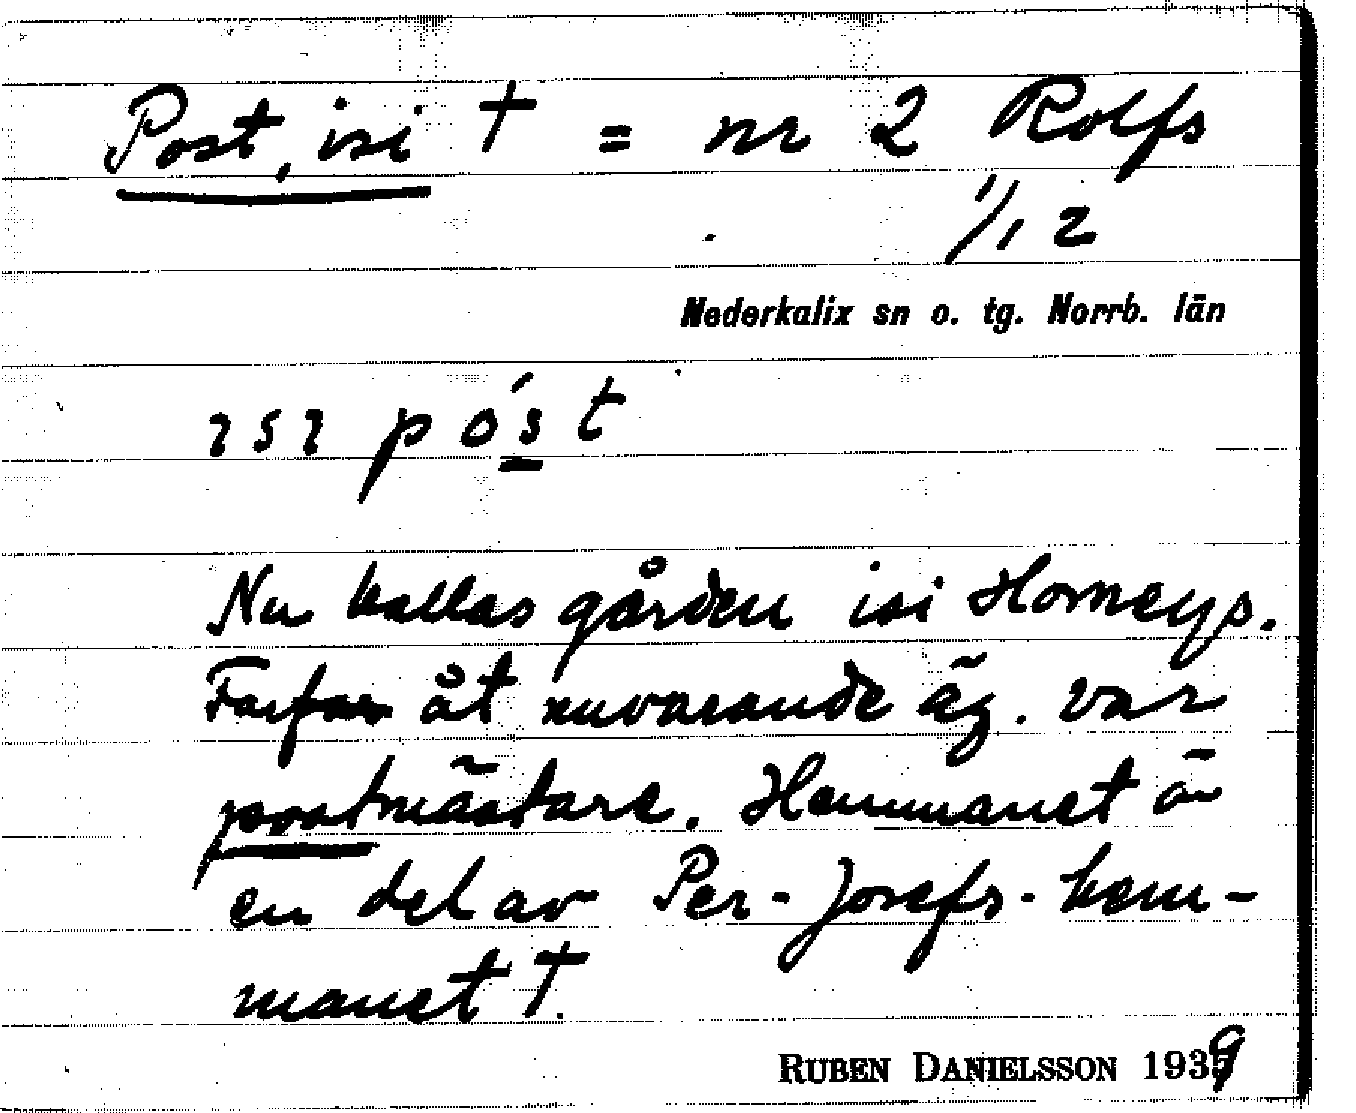 Post, isi † = nr 2 Rolfs
1/12
Nederkalix sn o. tg. Norrb. län
ɿsɿ pós̲t
Nu kallas gården isi Horneys.
Farfar åt nuvarande äg. var
postmästare. Hemmanet är
en del av Per-Josefs-hem-
manet †.
RUBEN DANIELSSON 1939